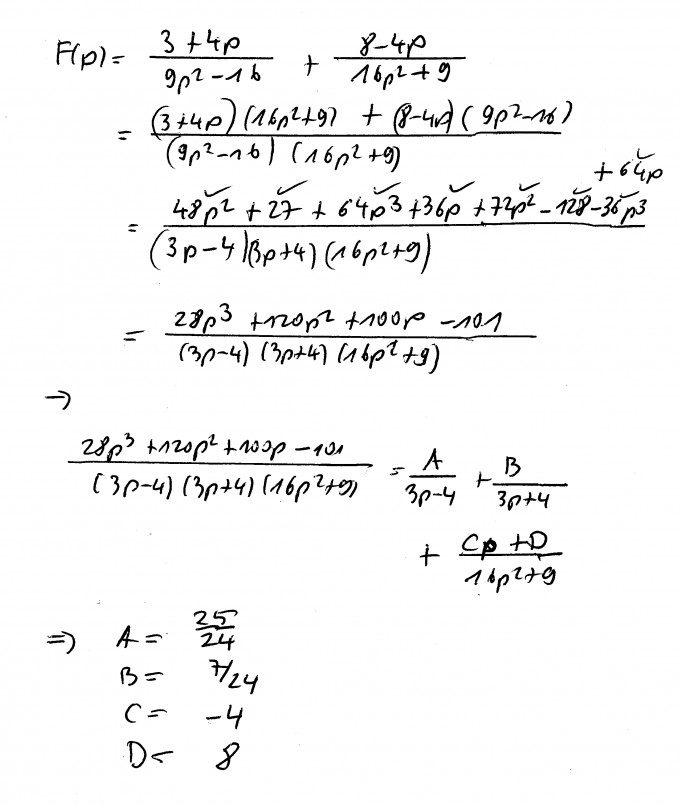 F(p) = (3+4p)/(9p²-16) + (8-4p)/(16p²+9)
= ((3+4p)(16p²+9) + (8-4p)(9p²-16))/((9p²-16)(16p²+9))
+64p
= (48p² + 27 + 64p³ + 36p + 72p² - 128 - 36p³)/((3p-4)(3p+4)(16p²+9))
= (28p³ + 120p² + 100p - 101)/((3p-4)(3p+4)(16p²+9))
→
(28p³ + 120p² + 100p - 101)/((3p-4)(3p+4)(16p²+9)) = A/(3p-4) + B/(3p+4)
+ (Cp + D)/(16p²+9)
⇒ A = 25/24
B = 7/24
C = -4
D = 8